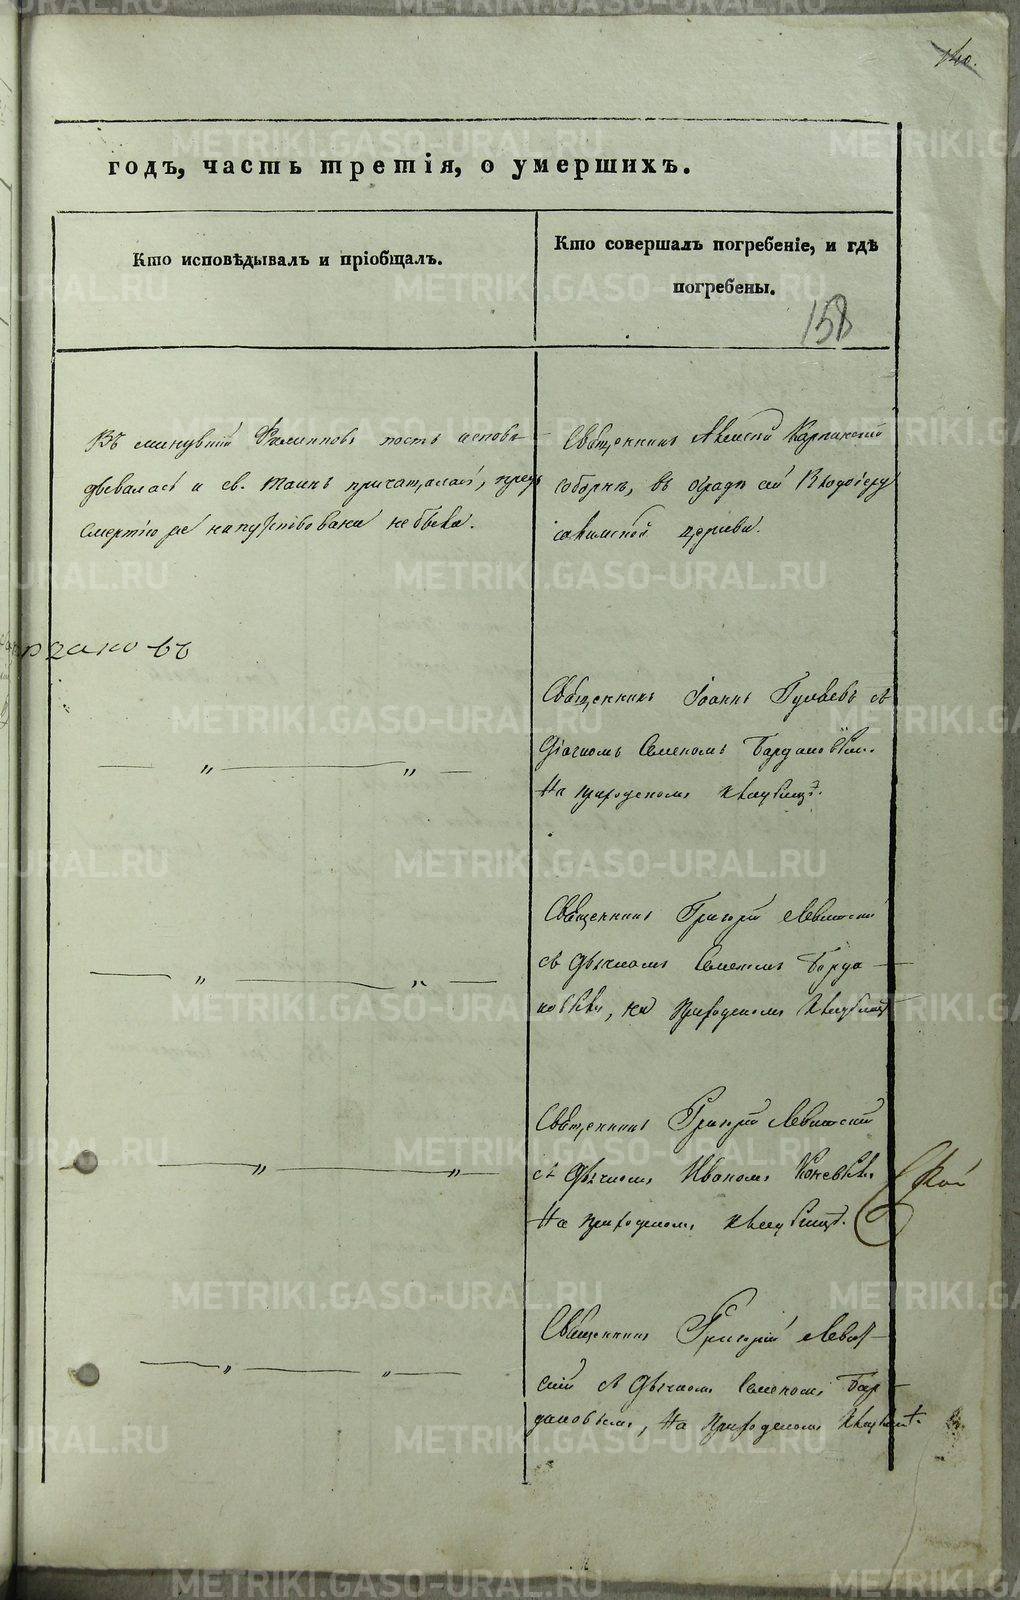 140.
годъ, часть третія, о умершихъ.
Кто исповѣдывалъ и пріобщалъ.
Кто совершалъ погребеніе, и гдѣ
погребены.
158
Въ минувшій Филипповъ постъ исповѣ-
дывалась и св. Таинъ причащалась, предъ
смертію же напутствована не была.
Священникъ Алексій Карпинскій
соборнѣ, въ оградѣ сей Входоіеру
салимской церкви.
Священникъ Іоаннъ Гуляевъ съ
Діачкомъ Семеномъ Бардановымъ.
На приходскомъ кладбищѣ.
Священникъ Григорій Левитскій
съ Дьячкомъ Семеномъ Барда-
новымъ, на Приходскомъ Кладбищѣ
Священникъ Григорій Левитскій
съ Дьячкомъ Иваномъ
На приходскомъ кладбищѣ.
Священникъ Григорій Левит-
скій съ Дьячкомъ Семеномъ Бар-
дановымъ, На Приходскомъ Кладбищѣ.
METRIKI.GASO-URAL.RU